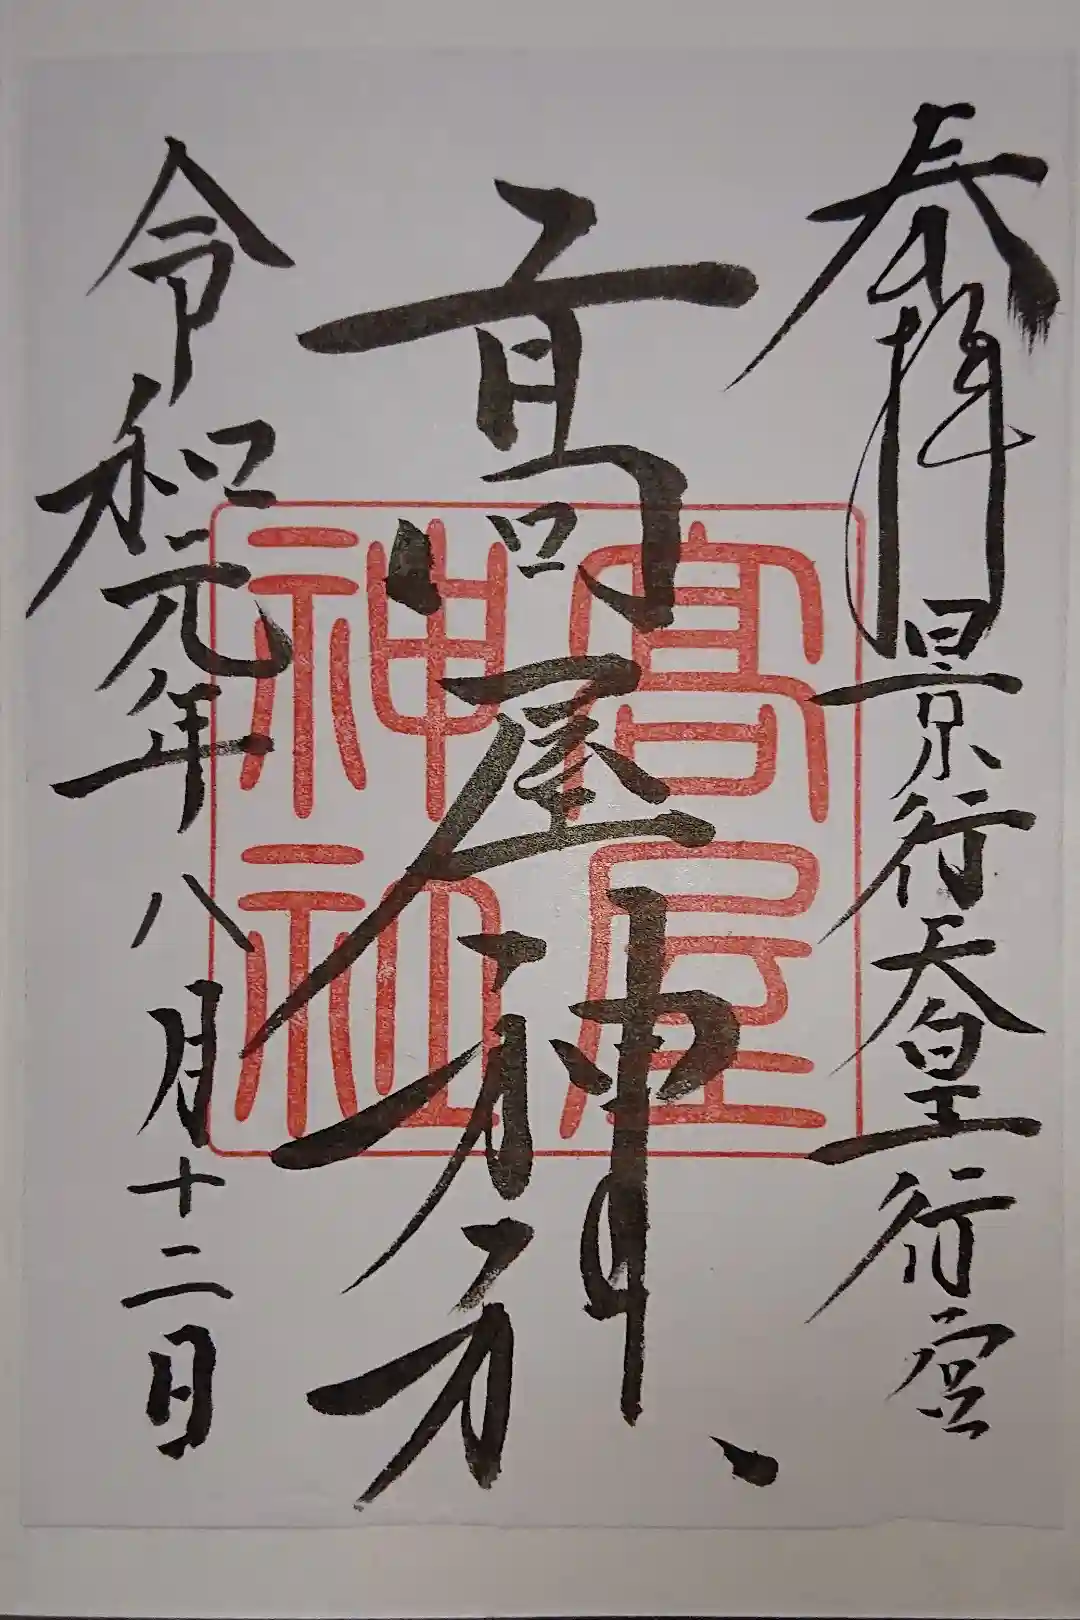 奉拝 景行天皇行宮
高屋神社
令和元年八月十二日
髙屋
神社